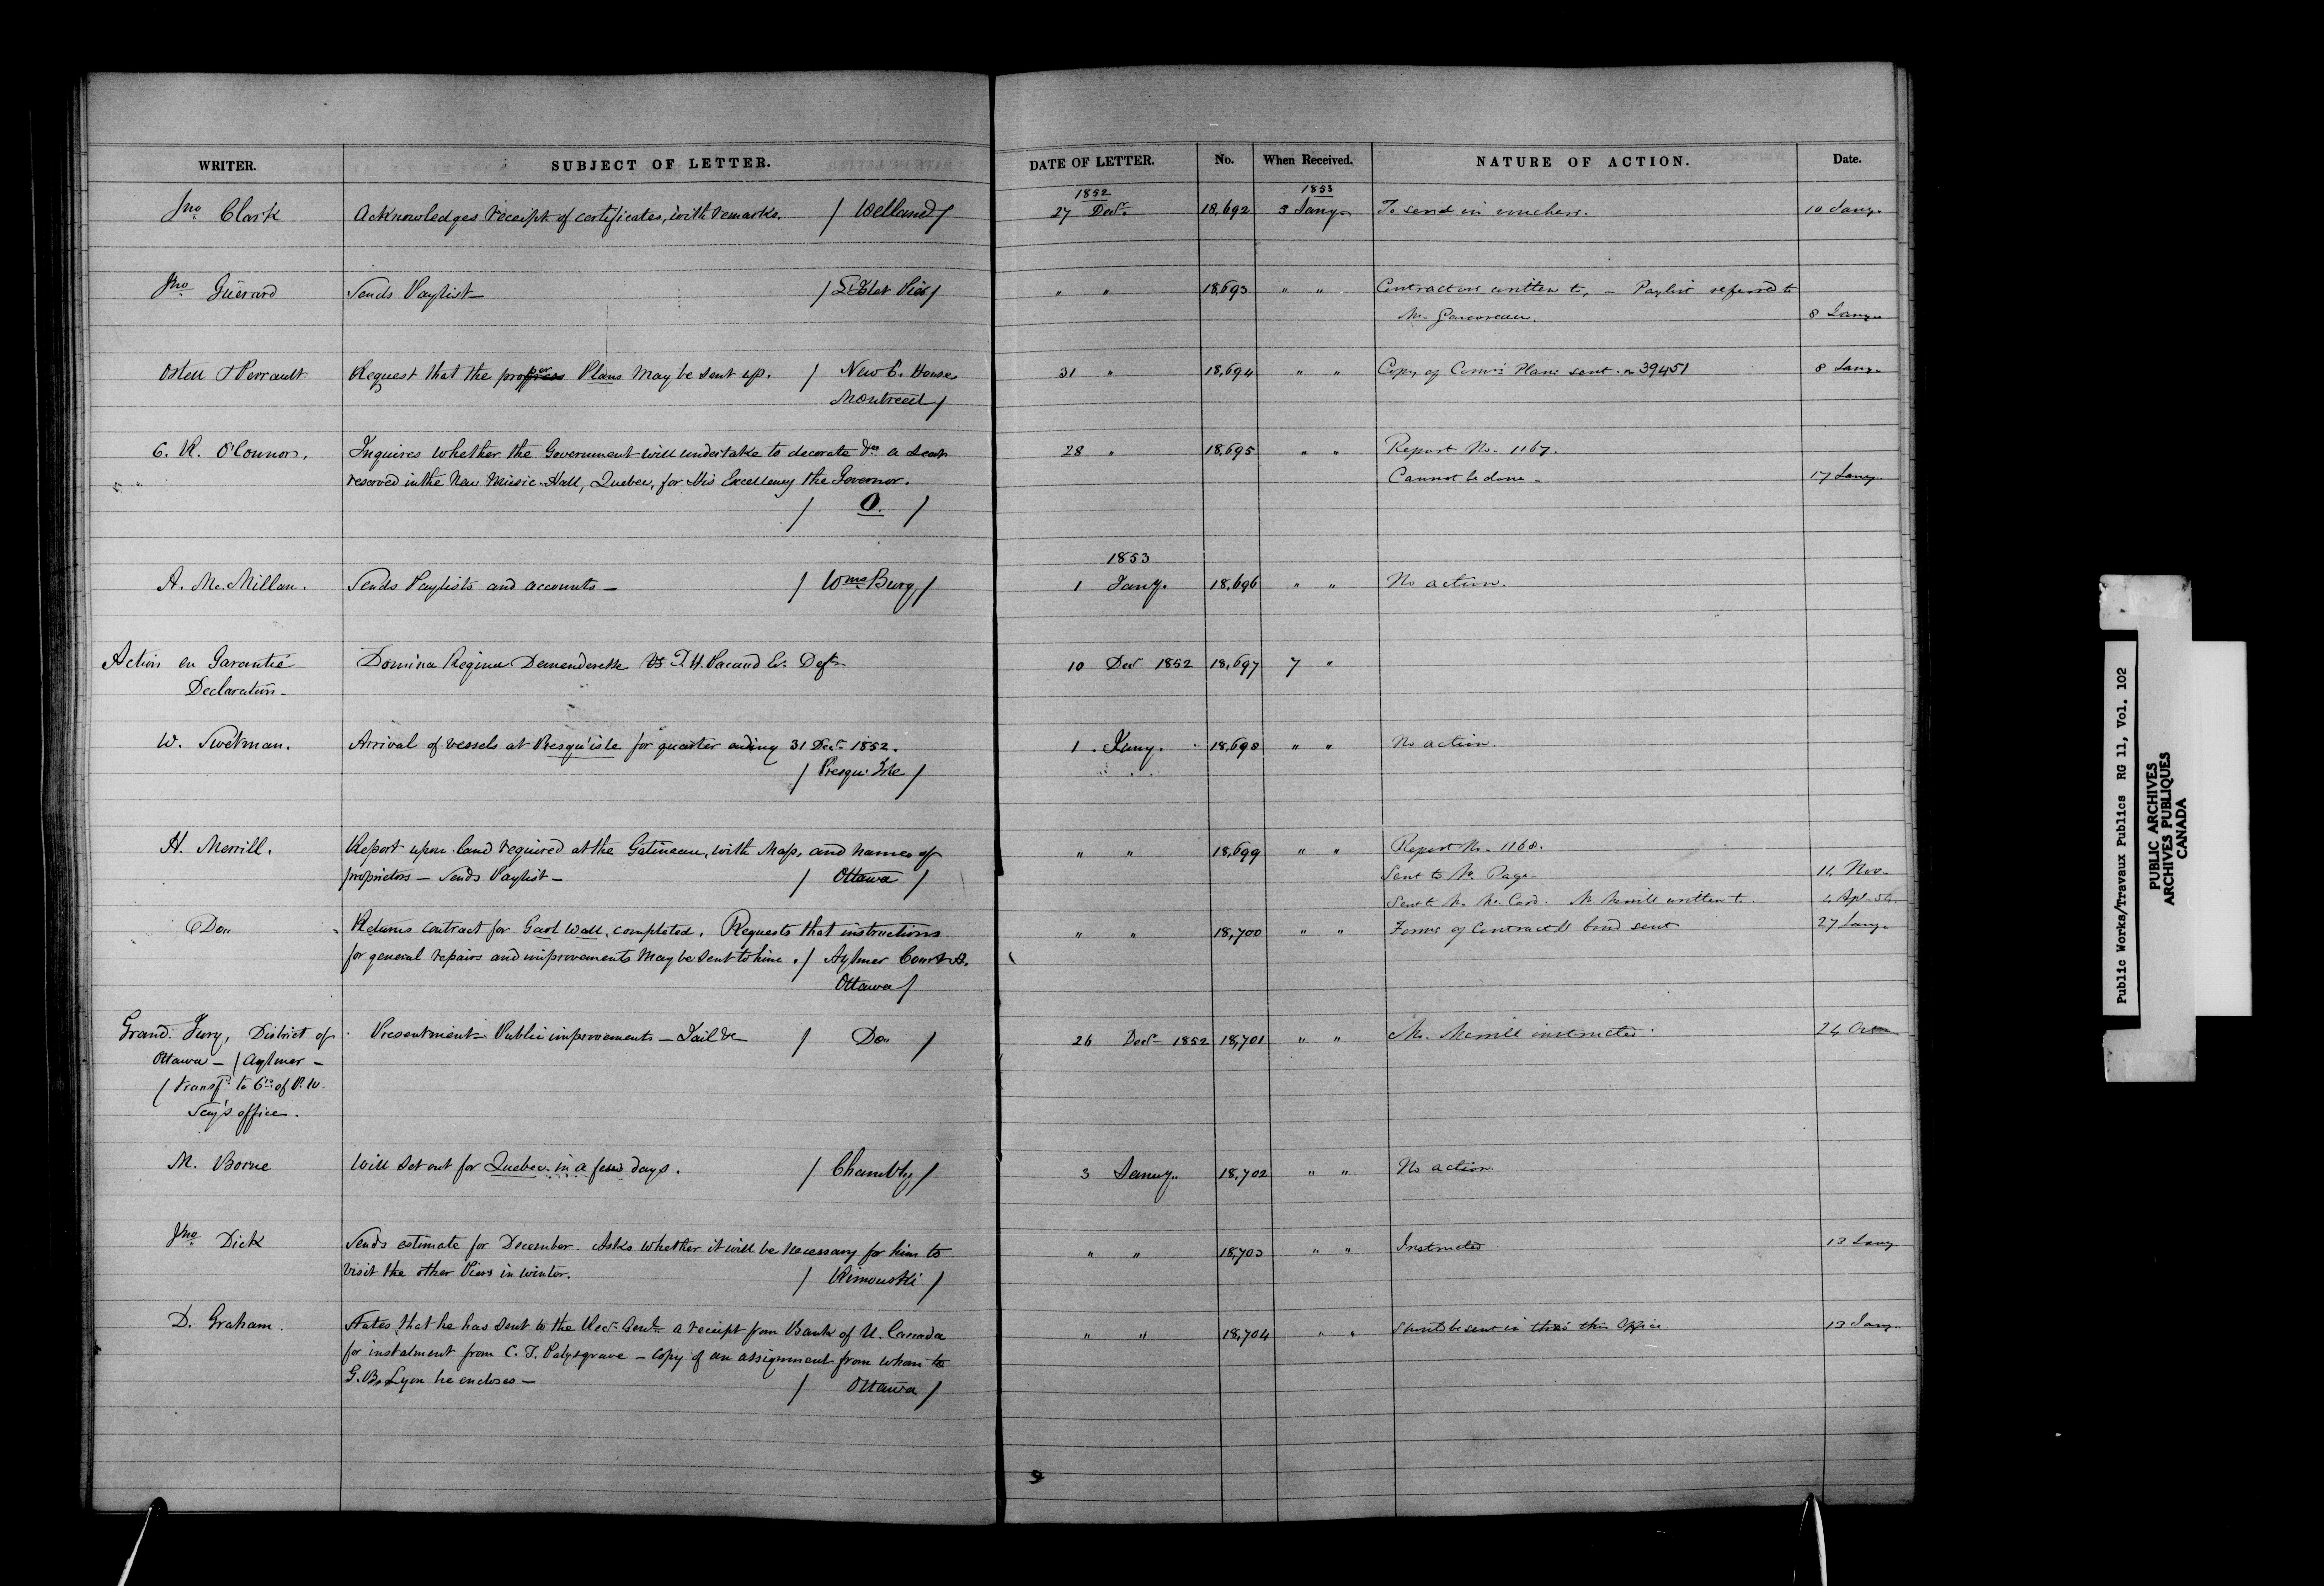 WRITER. SUBJECT OF LETTER. DATE OF LETTER. No. When Received. NATURE OF ACTION. Date.
1852 1853
Jno. Clark Acknowledges receipt of certificates, with remarks. / Welland / 27 Decr. 18,692 3 Jany. To send in vouchers. 10 Jany.
Jno. Guérard Sends Paylist — / L'Islet Pier / " " 18,693 " " Contractors written to, — Paylist referred to
Mr. 8 Jany.
Ostell & Perrault Request that the proper Plans may be sent up. / New C. House 31 " 18,694 " " Copy of Plans sent. 39451 8 Jany.
Montreal /
C. R. O'Connor, Inquires whether the Government will undertake to decorate &ca a seat 28 " 18,695 " " Report No. 1167.
reserved in the New Music Hall, Quebec, for His Excellency the Governor. Cannot be done — 17 Jany.
/ O. /
1853
A. McMillan. Sends Paylists and accounts — / Wms Burg / 1 Jany. 18,696 " " No action.
Action en Garantie Domina Regina Demanderesse vs Deft 10 Decr 1852 18,697 7 "
Declaration —
W. Swetman. Arrival of vessels at Presqu'isle for quarter ending 31 Decr. 1852. 1. Jany. 18,698 " " No action.
/ Presqu'Isle /
H. Merrill. Report upon land required at the Gatineau, with Map, and names of " " 18,699 " " Report No. 1168.
proprietors — Sends Paylist — / Ottawa / Sent to Mr. Page — Nov.
Mr. Merrill written to. Apl. 54
Do. Returns contract for Gaol Wall, completed. Requests that instructions " " 18,700 " " Forms of Contract & bond sent 27 Jany.
for general repairs and improvements may be sent to him. / Aylmer Court H.
Ottawa /
Grand Jury, District of Presentment Public improvements — Jail &c / Do. / 26 Decr. 1852 18,701 " " Mr. Merrill instructed 24
Ottawa — / Aylmer —
/ transfd. to Crs. of P. W.
Secy's office.
M. Borne Will set out for Quebec in a few days. / Chambly / 3 Jany. 18,702 " " No action.
Jno. Dick Sends estimate for December. Asks whether it will be necessary for him to " " 18,703 " " Instructed 13 Jany.
visit the other Piers in winter. / Rimouski /
D. Graham. States that he has sent to the Recr. Genl. a receipt from Bank of U. Canada " " 18,704 " " Should be sent in thro' this Office 13 Jany.
for instalment from C. T. Palsgrave — copy of an assignment from whom to
G. B. Lyon he encloses — / Ottawa /
Public Works/Travaux Publics RG 11, Vol. 102
PUBLIC ARCHIVES
ARCHIVES PUBLIQUES
CANADA